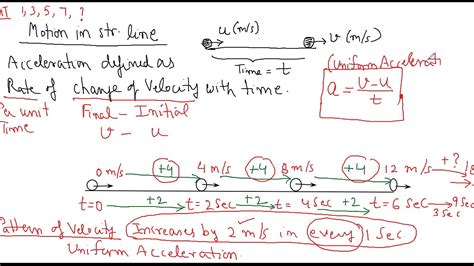 1, 3, 5, 7, ?
Motion in str. line
u(m/s)
v(m/s)
Time = t
Acceleration defined as
Rate of change of Velocity with time.
Per unit
Time
Final - Initial
v - u
(Uniform Accelerati
a = v-u / t
0 m/s +4 4 m/s +4 8 m/s +4 12 m/s +? 18
t=0 +2 t=2sec +2 t=4sec +2 t=6sec 9sec
3sec
Pattern of Velocity Increases by 2 m/s in every 1 sec.
Uniform Acceleration.